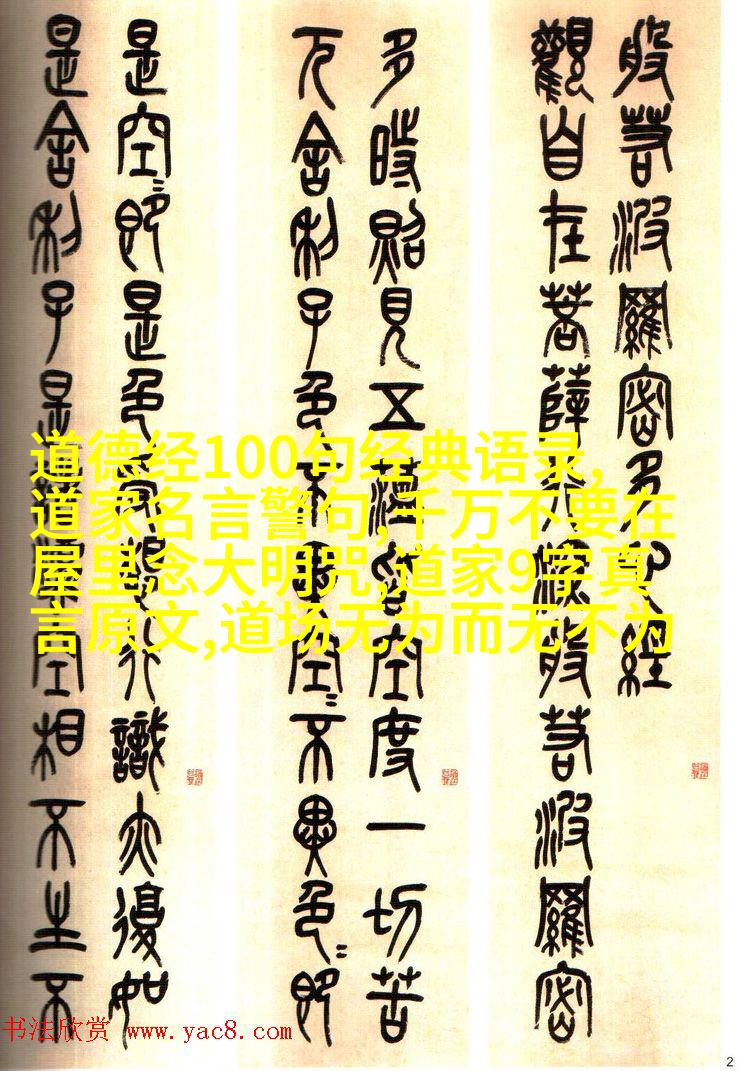 般若波羅密多心經
觀自在菩薩行深般若波羅密
多時照見五蘊皆空度一切苦
厄舍利子色不異空〻不異色〻即
是空〻即是色受想行識亦復如
是舍利子是諸法空相不生不
道德经100句经典语录,
道家名言警句,千万不要在
屋里念大明咒,道家9字真
言原文,道场无为而无不为
书法欣赏 www.yac8.com
2